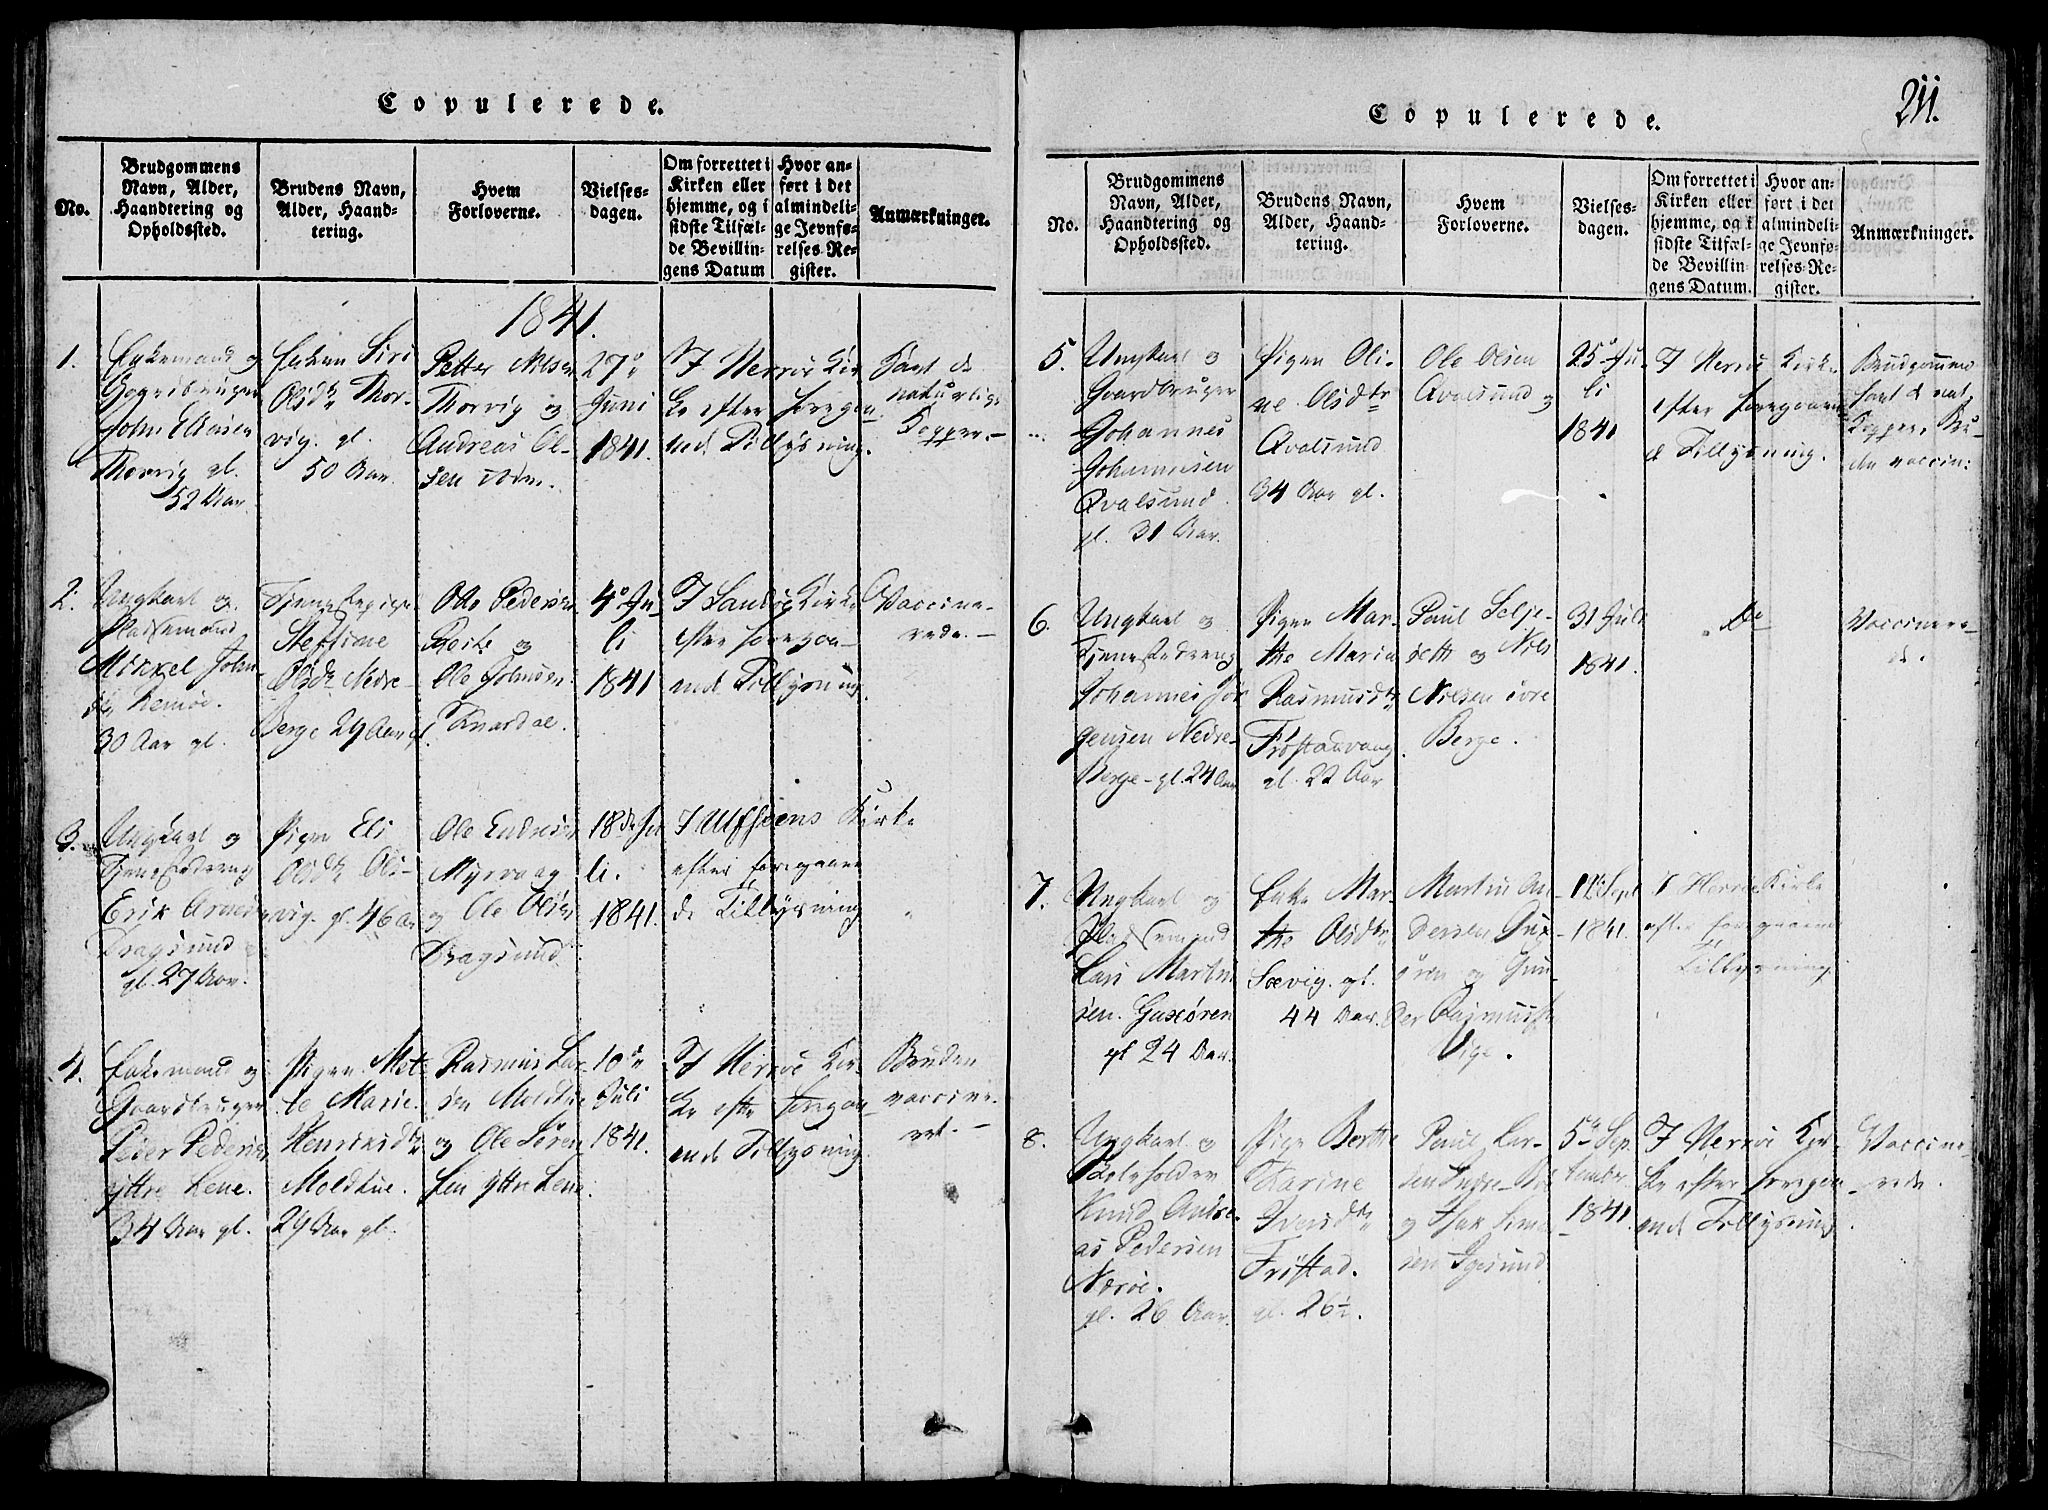 Copulerede.
No.
Brudgommens
Navn, Alder,
Haandtering og
Opholdssted.
Brudens Navn,
Alder, Haand-
tering.
Hvem
Forloverne.
Vielses-
dagen.
Om forrettet i
Kirken eller
hjemme, og i
sidste Tilfæl-
de Bevillin-
gens Datum
Hvor an-
ført i det
almindeli-
ge Jevnfø-
relses-Re-
gister.
Anmærkninger.
1841.
1.
Enkemand og
John
Thorvig gl.
52 Aar
Enken Siri
Olsdtr Thor-
vig. gl.
50 Aar.
Petter Nilsen
Thorvig og
Andreas Ol-
sen
27de
Juni
1841.
I Herröe Kir-
ke efter foregaa-
ende Tillysning.
Havt de
naturlige
Kopper. -
2.
Ungkarl og
Pladsemand
Mikkel John-
sen Remöe.
30 Aar gl.
Tjenestepige
Steffine
Olsdtr Nedre-
Berge 29 Aar gl.
Otto Pedersen
og
Ole Johnsen
4de Ju-
li
1841
I Sandöe Kirke
efter foregaa-
ende Tillysning.
Vaccine-
rede. -
3.
Ungkarl og
Tjenestedreng
Erik Arnesen
Dragsund
gl. 27 Aar.
Pigen Eli
Olsdtr Oli-
vig. gl. 46 Aar
Ole Endresen
Myrvaag
og Ole Olsen
Dragsund
18de Ju-
li.
1841.
I Ulfsteens Kirke
efter foregaaen-
de Tillysning
4.
Enkemand og
Gaardbruger
Peder Pedersen
yttre Lene.
34 Aar gl.
Pigen Met-
te Marie
Henriksdtr
Moldtue.
29 Aar gl.
Rasmus Lar-
sen Moldtue
og Ole Sören-
sen yttre Lene.
10de
Juli
1841.
I Herröe Kir-
ke efter foregaa-
ende Tillysning
Bruden
vaccine-
ret. -
211.
Copulerede.
No.
Brudgommens
Navn, Alder,
Haandtering og
Opholdssted.
Brudens Navn,
Alder, Haand-
tering.
Hvem
Forloverne.
Vielses-
dagen.
Om forrettet i
Kirken eller
hjemme, og i
sidste Tilfæl-
de Bevillin-
gens Datum.
Hvor an-
ført i det
almindeli-
ge Jevnfø-
relses-Re-
gister.
Anmærkninger.
5.
Ungkarl og
Gaardbruger
Johannes
Johannesen
Qvalsund
gl. 31 Aar.
Pigen Oli-
ne Olsdtr
Qvalsund
34 Aar gl.
Ole Olsen
Qvalsund og
25de Ju-
li
1841
I Herröe Kirke
efter foregaaen-
de Tillysning.
Brudgommen
havt de nat.
Kopper, Bru-
den vaccin:
6.
Ungkarl og
Tjenestedreng
Johannes Jör-
gensen Nedre-
Berge - gl. 24 Aar
Pigen Mar-
the Maria
Rasmusdtr
Fröstadvaag
gl. 22 Aar
Paul Selje-
seth og Nils
Nielsen övre
Berge.
31 Juli
1841.
Do
Vaccinere-
de.
7.
Ungkarl og
Pladsemand
Lars Martin-
sen. Gusiören
gl 24 Aar.
Enke Mar-
the Olsdtr
Sævig. gl.
44 Aar.
Martin An-
dersen
og Gun-
der Rasmussen
Vige.
Sept
1841.
I Herröe Kirke
efter foregaaende
Tillysning
8.
Ungkarl og
Skoleholder
Knud Andre-
as Pedersen
Neröe.
gl. 26 Aar.
Pige Berthe
Karine
Iversdtr
Fröstad.
gl. 26½.
Paul Lar-
sen Indre-
og Isak Simon-
sen Igesund
5te Sep-
tember
1841
I Herröe Kir-
ke efter foregaa-
ende Tillysning.
Vaccine-
rede.